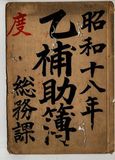 昭和十八年
乙補助簿
総務課
度